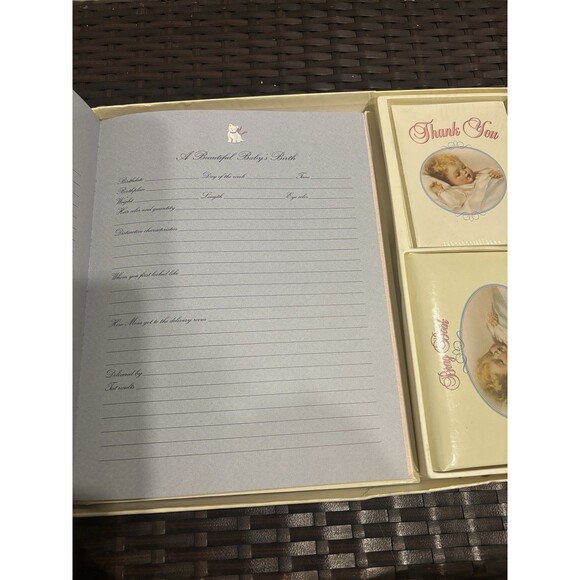 A Beautiful Baby's Birth
Birthdate Day of the week Time
Birthplace
Weight Length Eye color
Hair color and quantity
Distinctive characteristics
Whom you first looked like
How Mom got to the delivery room
Delivered by
Test results
Thank You
Book